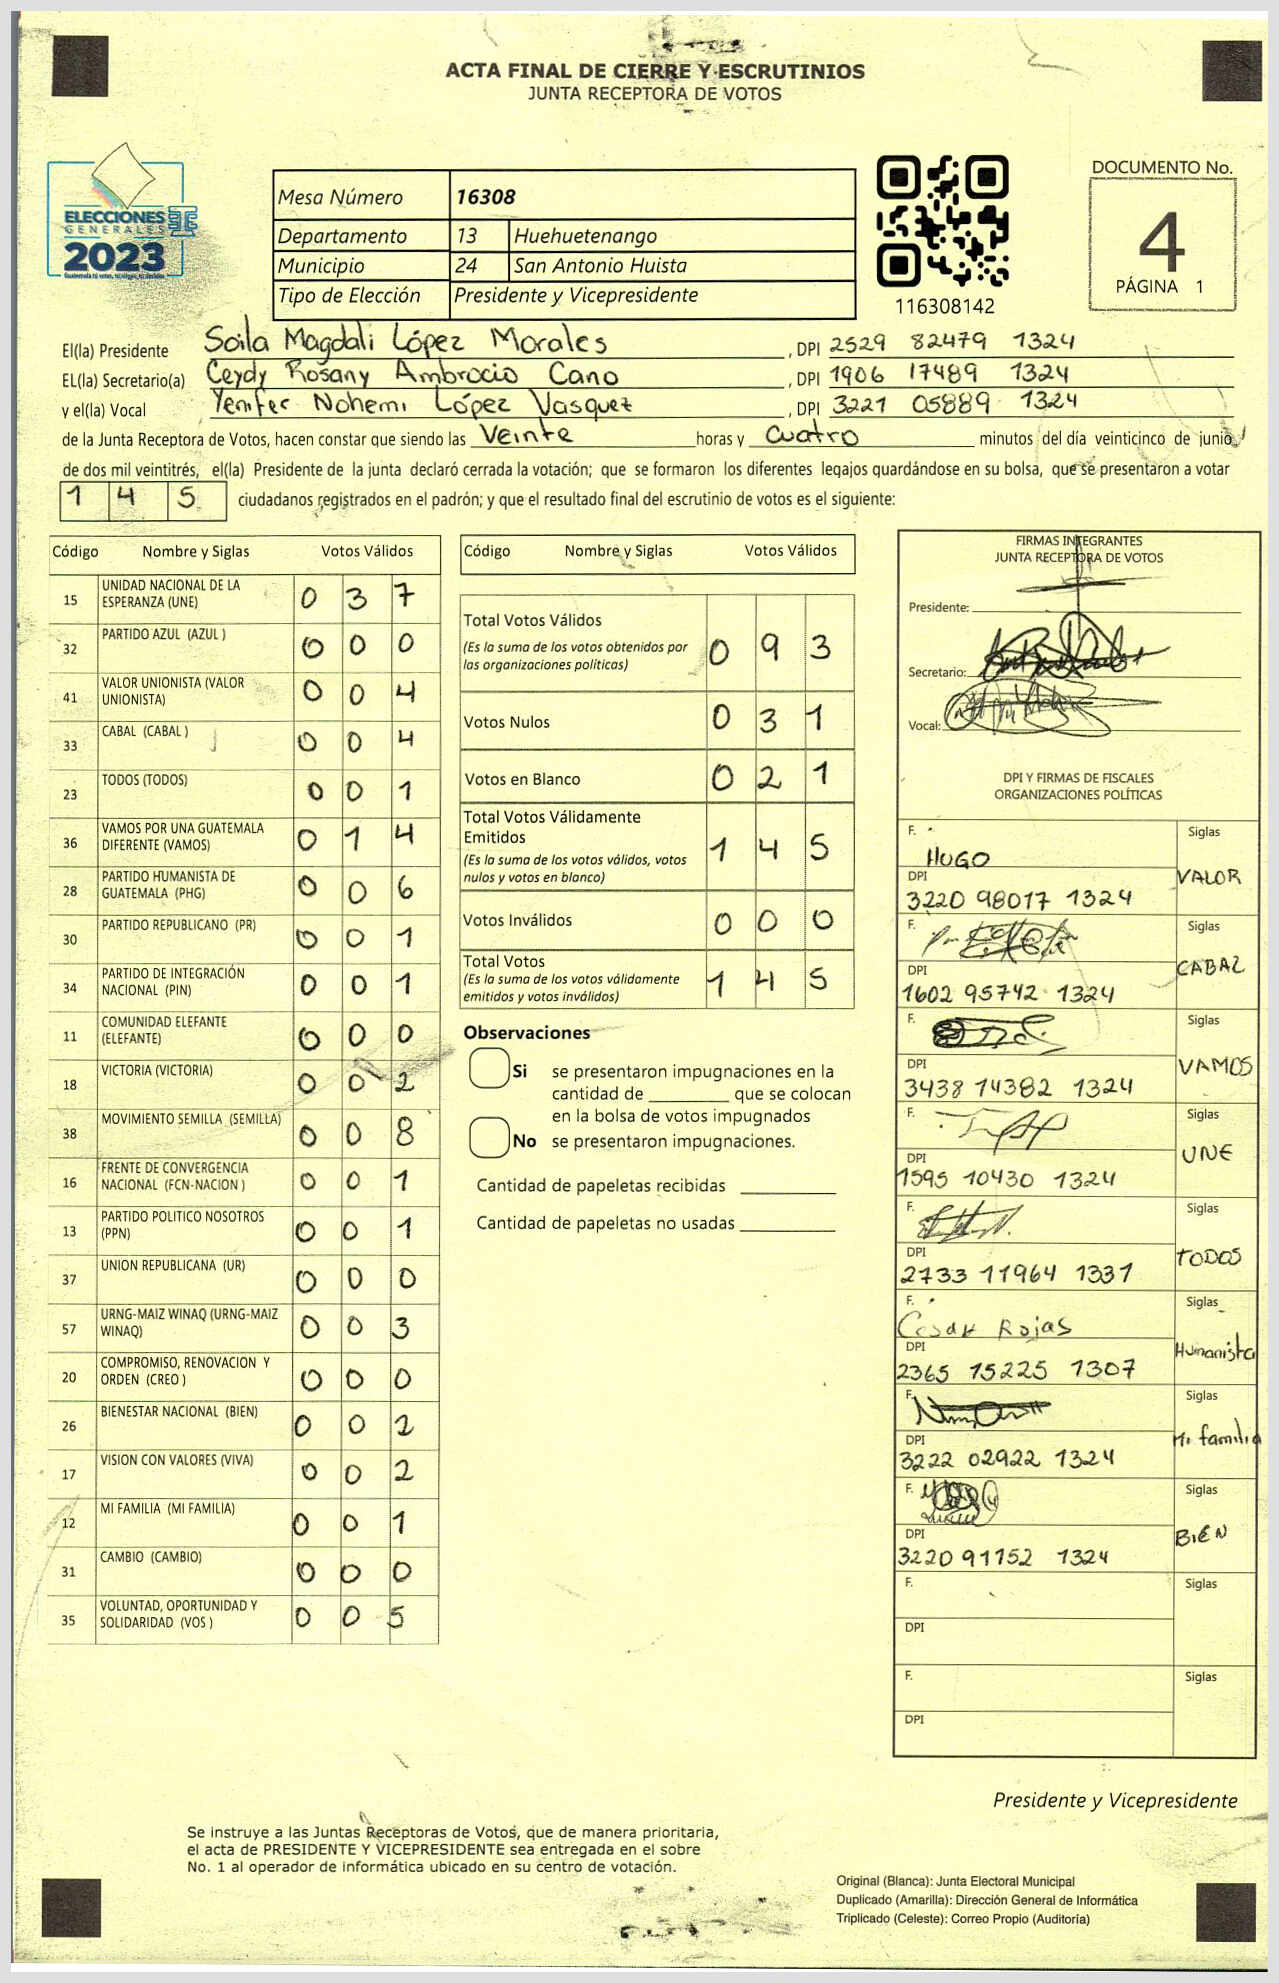 ACTA FINAL DE CIERRE Y ESCRUTINIOS
JUNTA RECEPTORA DE VOTOS
ELECCIONES
GENERALES
2023
Mesa Número 16308
Departamento 13 Huehuetenango
Municipio 24 San Antonio Huista
Tipo de Elección Presidente y Vicepresidente
116308142
DOCUMENTO No.
4
PÁGINA 1
El(la) Presidente Soila Magdali López Morales , DPI 2529 82479 1324
EL(la) Secretario(a) Ceydy Rosany Ambrocio Cano , DPI 1906 17489 1324
y el(la) Vocal Yenifer Nohemi López Vasquez , DPI 3221 05889 1324
de la Junta Receptora de Votos, hacen constar que siendo las Veinte horas y Cuatro minutos del día veinticinco de junio
de dos mil veintitrés, el(la) Presidente de la junta declaró cerrada la votación; que se formaron los diferentes legajos guardándose en su bolsa, que se presentaron a votar
1 4 5 ciudadanos registrados en el padrón; y que el resultado final del escrutinio de votos es el siguiente:
Código Nombre y Siglas Votos Válidos
15 UNIDAD NACIONAL DE LA ESPERANZA (UNE) 0 3 7
32 PARTIDO AZUL (AZUL ) 0 0 0
41 VALOR UNIONISTA (VALOR UNIONISTA) 0 0 4
33 CABAL (CABAL ) 0 0 4
23 TODOS (TODOS) 0 0 1
36 VAMOS POR UNA GUATEMALA DIFERENTE (VAMOS) 0 1 4
28 PARTIDO HUMANISTA DE GUATEMALA (PHG) 0 0 6
30 PARTIDO REPUBLICANO (PR) 0 0 1
34 PARTIDO DE INTEGRACIÓN NACIONAL (PIN) 0 0 1
11 COMUNIDAD ELEFANTE (ELEFANTE) 0 0 0
18 VICTORIA (VICTORIA) 0 0 2
38 MOVIMIENTO SEMILLA (SEMILLA) 0 0 8
16 FRENTE DE CONVERGENCIA NACIONAL (FCN-NACION ) 0 0 1
13 PARTIDO POLITICO NOSOTROS (PPN) 0 0 1
37 UNION REPUBLICANA (UR) 0 0 0
57 URNG-MAIZ WINAQ (URNG-MAIZ WINAQ) 0 0 3
20 COMPROMISO, RENOVACION Y ORDEN (CREO ) 0 0 0
26 BIENESTAR NACIONAL (BIEN) 0 0 2
17 VISION CON VALORES (VIVA) 0 0 2
12 MI FAMILIA (MI FAMILIA) 0 0 1
31 CAMBIO (CAMBIO) 0 0 0
35 VOLUNTAD, OPORTUNIDAD Y SOLIDARIDAD (VOS ) 0 0 5
Código Nombre y Siglas Votos Válidos
Total Votos Válidos 0 9 3
(Es la suma de los votos obtenidos por
las organizaciones políticas)
Votos Nulos 0 3 1
Votos en Blanco 0 2 1
Total Votos Válidamente
Emitidos 1 4 5
(Es la suma de los votos válidos, votos
nulos y votos en blanco)
Votos Inválidos 0 0 0
Total Votos 1 4 5
(Es la suma de los votos válidamente
emitidos y votos inválidos)
Observaciones
Si se presentaron impugnaciones en la
cantidad de ________ que se colocan
en la bolsa de votos impugnados
No se presentaron impugnaciones.
Cantidad de papeletas recibidas
Cantidad de papeletas no usadas
FIRMAS INTEGRANTES
JUNTA RECEPTORA DE VOTOS
Presidente:
Secretario:
Vocal:
DPI Y FIRMAS DE FISCALES
ORGANIZACIONES POLÍTICAS
F. HUGO Siglas VALOR
DPI 3220 98017 1324
F. Siglas CABAL
DPI 1602 95742 1324
F. Siglas VAMOS
DPI 3438 14382 1324
F. Siglas UNE
DPI 1595 10430 1324
F. Siglas TODOS
DPI 2733 11964 1331
F. Cesar Rojas Siglas Humanista
DPI 2365 15225 1307
F. Siglas Mi familia
DPI 3222 02922 1324
F. Siglas BIEN
DPI 3220 91152 1324
F. Siglas
DPI
F. Siglas
DPI
Presidente y Vicepresidente
Se instruye a las Juntas Receptoras de Votos, que de manera prioritaria,
el acta de PRESIDENTE Y VICEPRESIDENTE sea entregada en el sobre
No. 1 al operador de informática ubicado en su centro de votación.
Original (Blanca): Junta Electoral Municipal
Duplicado (Amarilla): Dirección General de Informática
Triplicado (Celeste): Correo Propio (Auditoría)